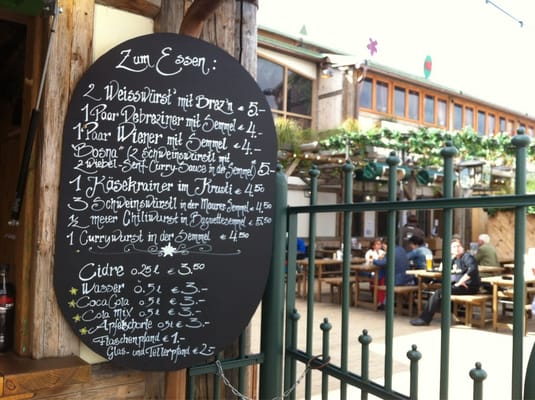 Zum Essen:
2 Weisswürst' mit Brez'n € 5.-
1 Paar Debreziner mit Semmel € 4.-
1 Paar Wiener mit Semmel € 4.-
"Bosna" (2 Schweinswürstl mit
Zwiebel-Senf-Curry-Sauce in der Semmel) 5.-
1 Käsekrainer im Krusti € 4.50
3 Schweinswürstl in der Maurer Semmel € 4.50
1/2 meter Chiliwurst in Baguettesemmel € 5.50
1 Currywurst in der Semmel € 4.50
Cidre 0.25l € 3.50
Wasser 0.5l € 3.-
Coca Cola 0.5l € 3.-
Cola mix 0.5l € 3.-
Apfelschorle 0.5l € 3.-
Flaschenpfand € 1.-
Glas- und Tellerpfand € 2.-